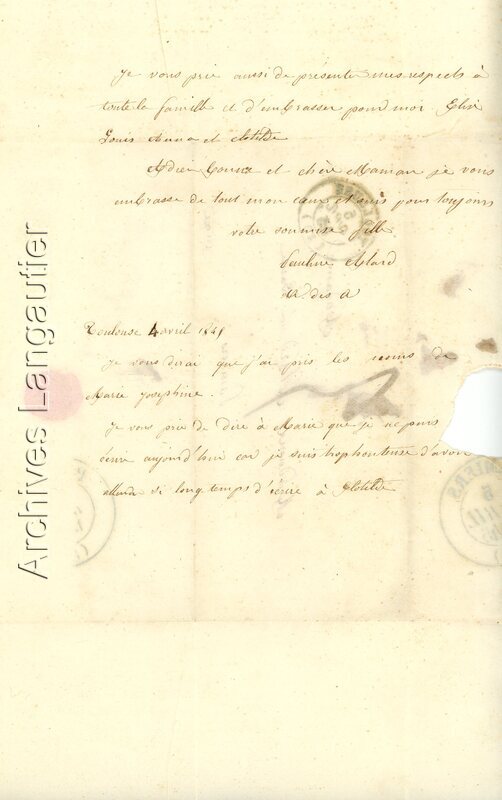 Je vous prie aussi de présenter mes respects à
toute la famille et d'embrasser pour moi Elisa
Louis Anna et Clotilde
Adieu bonne et chère Maman je vous
embrasse de tout mon cœur et suis pour toujours
votre soumise fille
Pauline Alard
Toulouse 4 avril 1849
Je vous dirai que j'ai pris les noms de
Marie Joséphine.
Je vous prie de dire à Marie que je ne puis
écrire aujourd'hui car je suis trop honteuse d'avoir
attendu si longtemps d'écrire à Clotilde
Archives Langautier